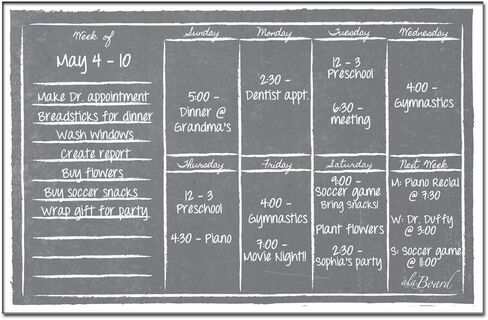 Week of
May 4 - 10
Make Dr. appointment
Breadsticks for dinner
Wash Windows
Create report
Buy flowers
Buy soccer snacks
Wrap gift for party
Sunday
5:00 -
Dinner @
Grandma's
Monday
2:30 -
Dentist appt.
Tuesday
12 - 3
Preschool
6:30 -
meeting
Wednesday
4:00 -
Gymnastics
Thursday
12 - 3
Preschool
4:30 - Piano
Friday
4:00 -
Gymnastics
7:00 -
Movie Night!!
Saturday
9:00 -
Soccer game
Bring Snacks!
Plant flowers
2:30 -
Sophia's party
Next Week
M: Piano Recial
@ 7:30
W: Dr. Duffy
@ 3:00
S: Soccer game
@ 11:00
alaBoard